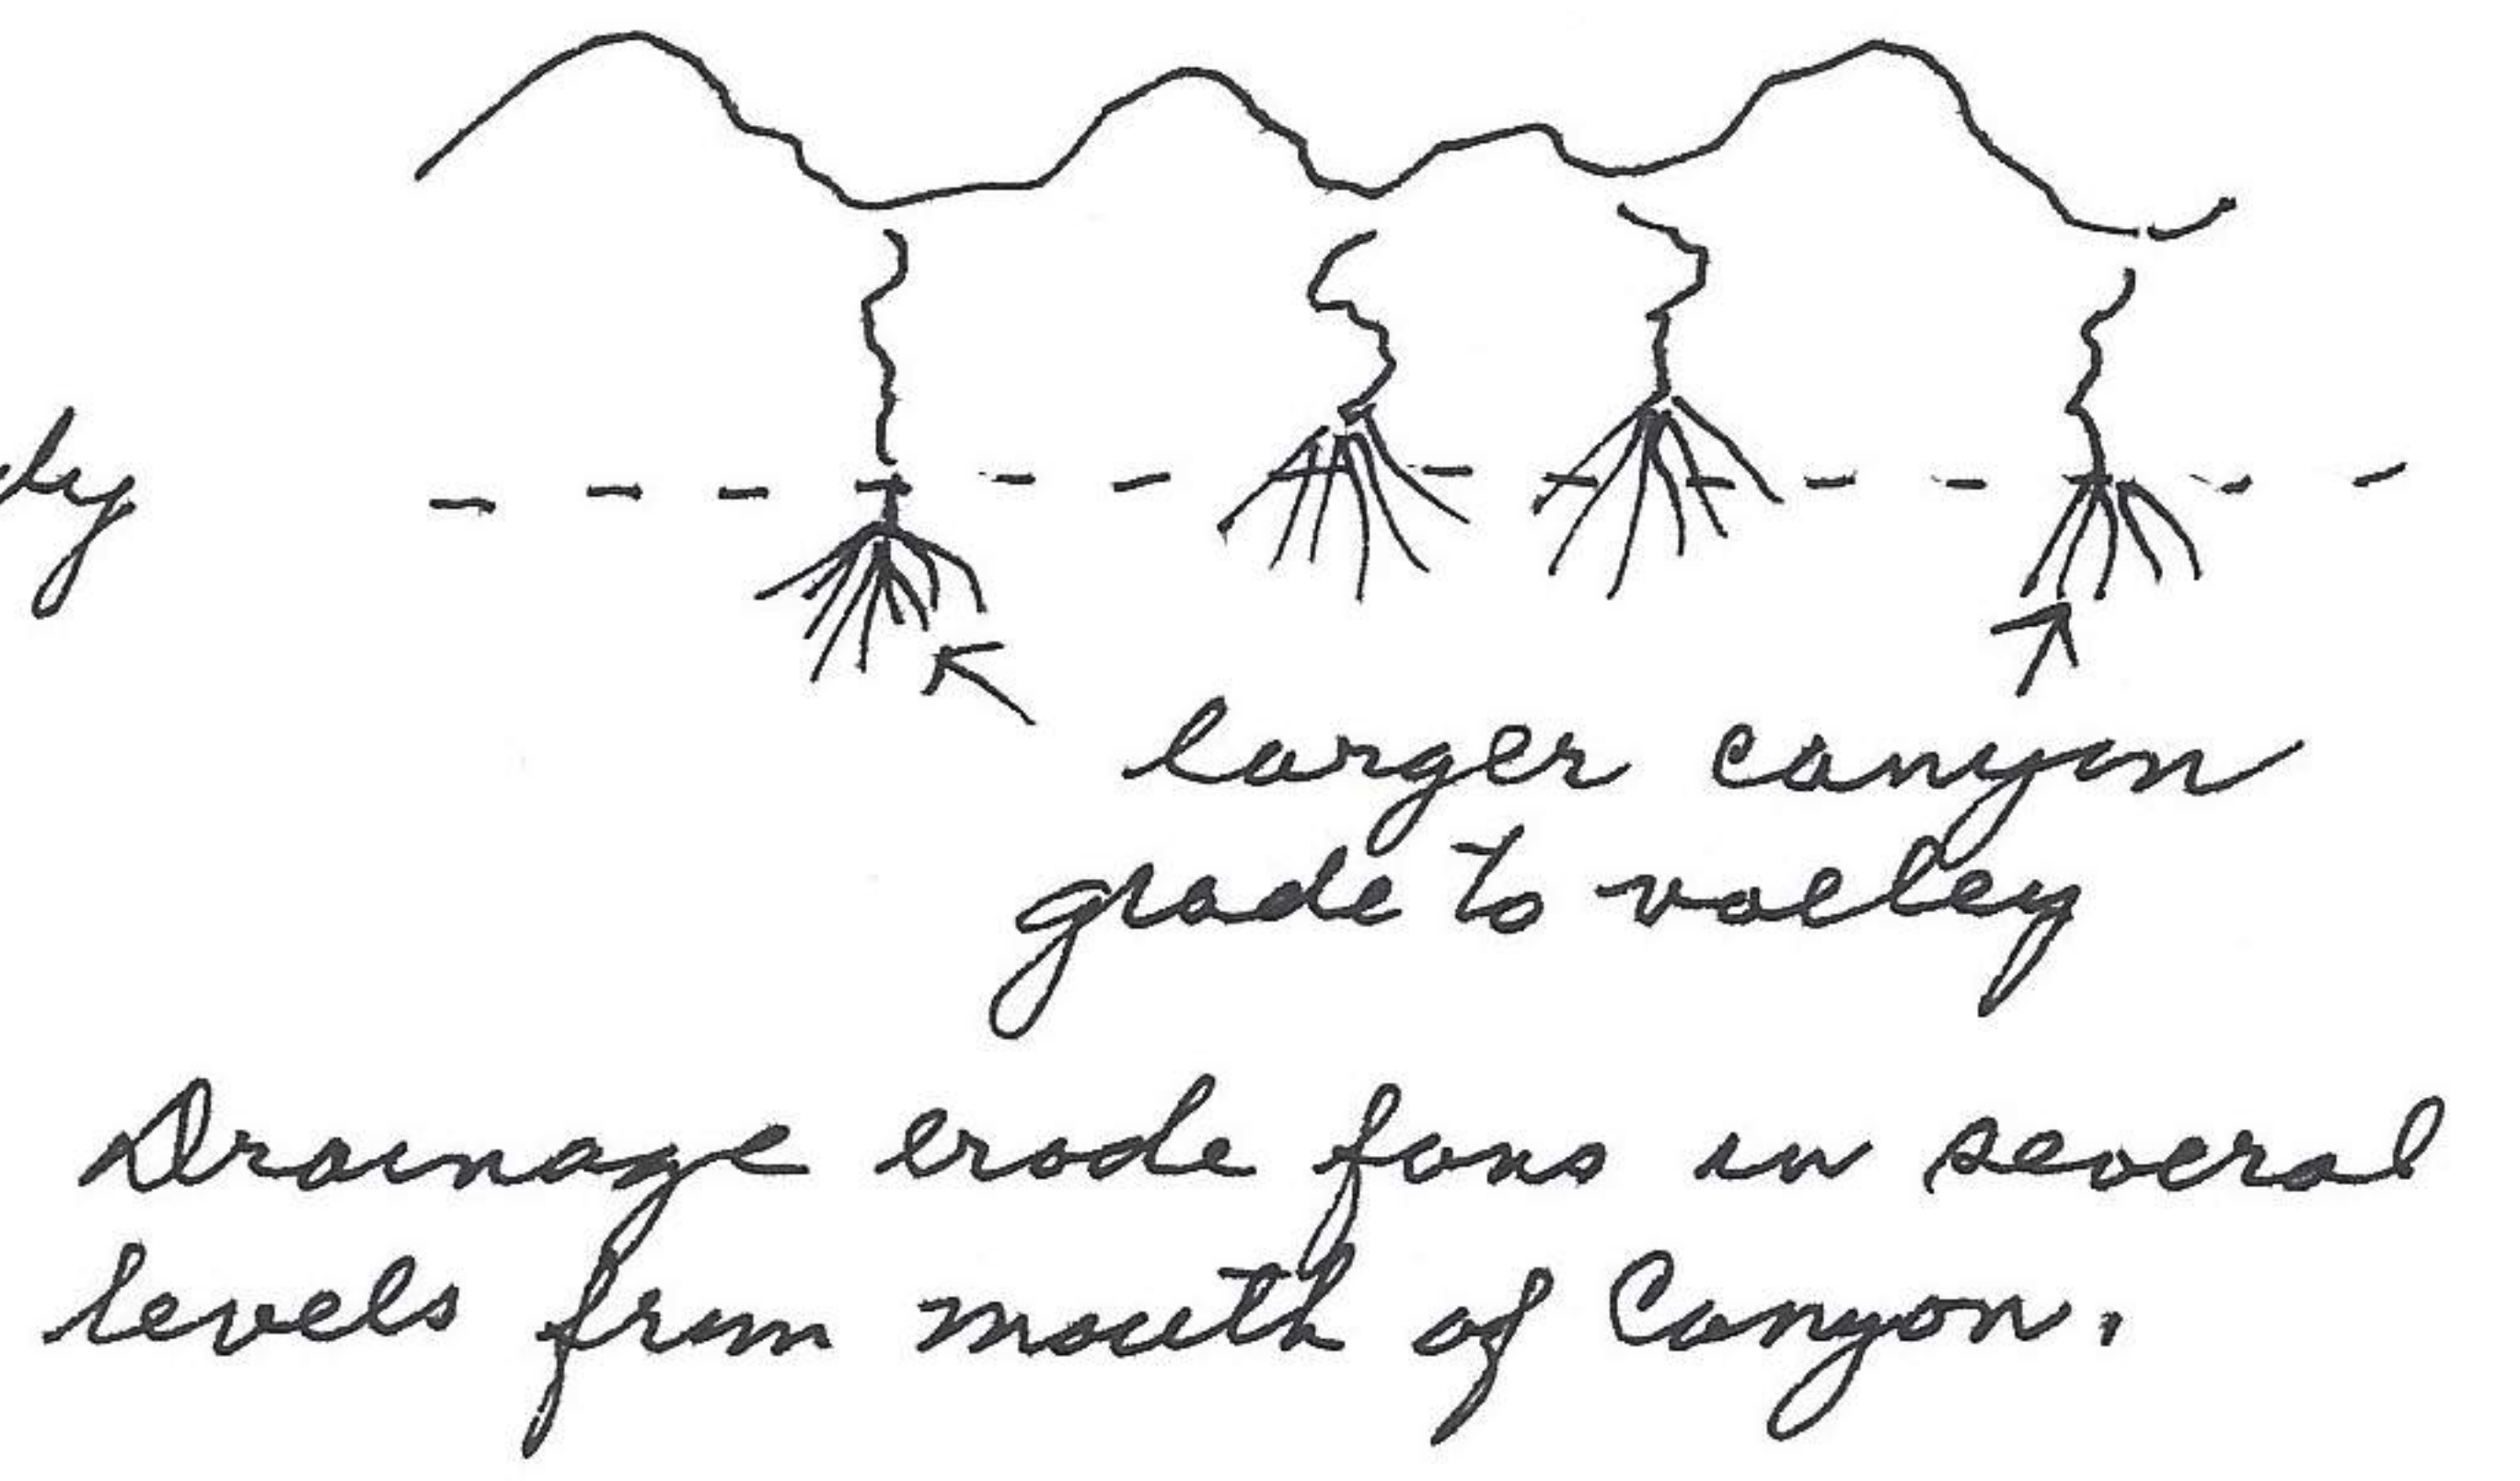 larger canyon
grade to valley
Drainage erode fans in several
levels from mouth of Canyon.